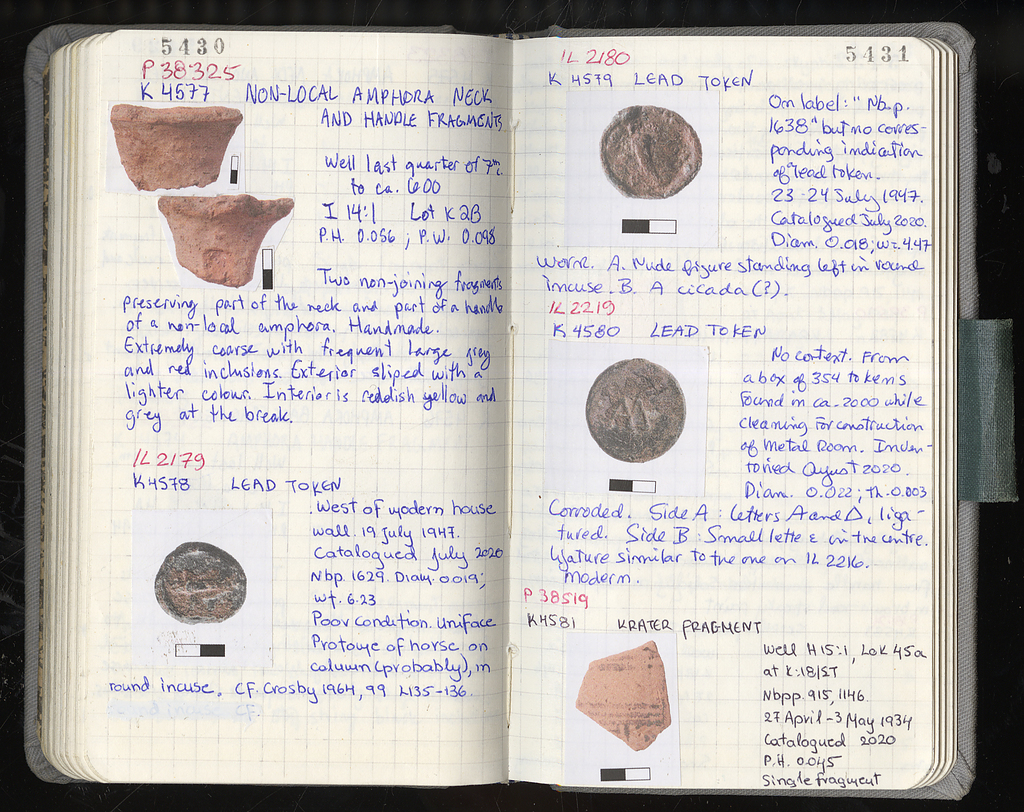 5430
P 38325
K 4577 NON-LOCAL AMPHORA NECK
AND HANDLE FRAGMENTS
Well last quarter of 7th c.
to ca. 600
I 14:1 Lot K 2B
P.H. 0.056 ; P.W. 0.098
Two non-joining fragments
preserving part of the neck and part of a handle
of a non-local amphora. Handmade.
Extremely coarse with frequent large grey
and red inclusions. Exterior sliped with a
lighter colour. Interior is reddish yellow and
grey at the break.
IL 2179
K 4578 LEAD TOKEN
West of modern house
wall. 19 July 1947.
Catalogued July 2020
Nbp. 1629. Diam. 0.019;
wt. 6.23
Poor condition. Uniface
Protome of horse, on
column (probably), in
round incuse. CF. Crosby 1964, 99 L135-136.
5431
IL 2180
K 4579 LEAD TOKEN
On label: "Nb.p.
1638" but no corres-
ponding indication
of lead token.
23-24 July 1947.
Catalogued July 2020.
Diam. 0.018; w. 4.47
Worn. A. Nude figure standing left in round
incuse. B. A cicada (?).
IL 2219
K 4580 LEAD TOKEN
No context. From
a box of 354 tokens
found in ca. 2000 while
cleaning for construction
of Metal Room. Inven-
toried August 2020.
Diam. 0.022; th. 0.003
Corroded. Side A: Letters A and Δ, liga-
tured. Side B: Small letter ε in the centre.
similar to the one on IL 2216.
Modern.
P 38519
K 4581 KRATER FRAGMENT
Well H 15:1, Lot 45a
at K:18/ST
Nbpp. 915, 1146
27 April - 3 May 1934
Catalogued 2020
P.H. 0.045
Single fragment